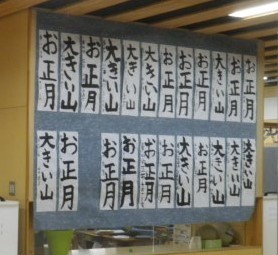 お正月
大きい山
お正月
大きい山
大きい山
お正月
お正月
お正月
大きい山
お正月
お正月
大きい山
お正月
お正月
お正月
お正月
お正月
大きい山
お正月
大きい山
大きい山
大きい山